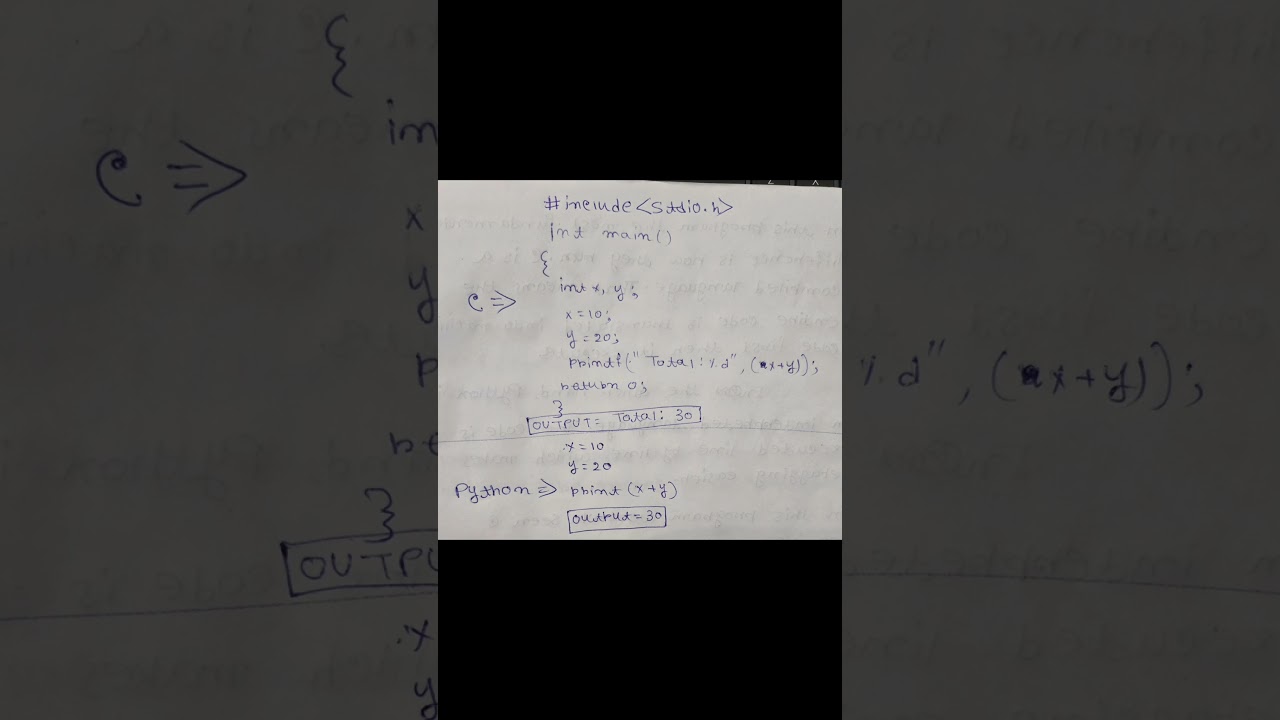 #include <stdio.h>
int main()
{
int x, y;
C ⇒
x = 10;
y = 20;
printf("Total: %d", (x+y));
return 0;
}
OUTPUT = Total: 30
x = 10
y = 20
Python ⇒ print (x+y)
OUTPUT = 30